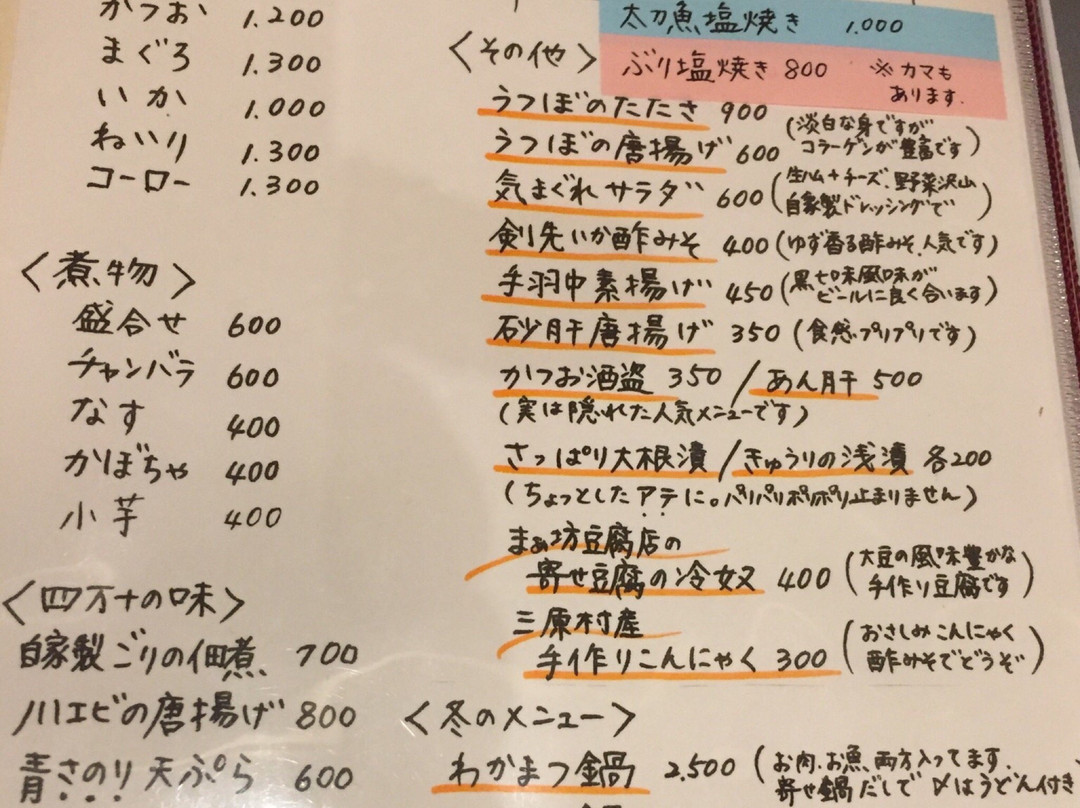 かつお 1.200
まぐろ 1.300
いか 1.000
ねいり 1.300
コーロー 1.300
〈煮物〉
盛合せ 600
チャンバラ 600
なす 400
かぼちゃ 400
小芋 400
〈四万十の味〉
自家製ごりの佃煮 700
川エビの唐揚げ 800
青さのり天ぷら 600
太刀魚塩焼き 1.000
ぶり塩焼き 800 ※カマも
あります.
〈その他〉
うつぼのたたき 900
うつぼの唐揚げ 600 (淡白な身ですが
コラーゲンが豊富です)
気まぐれサラダ 600 (生ハム+チーズ、野菜沢山
自家製ドレッシングで)
剣先いか酢みそ 400 (ゆず香る酢みそ、人気です)
手羽中素揚げ 450 (黒七味風味が
ビールに良く合います)
砂肝唐揚げ 350 (食感プリプリです)
かつお酒盗 350 / あん肝 500
(実は隠れた人気メニューです)
さっぱり大根漬 / きゅうりの浅漬 各200
(ちょっとしたアテに。パリパリポリポリ止まりません)
まぁ坊豆腐店の
寄せ豆腐の冷奴 400 (大豆の風味豊かな
手作り豆腐です)
三原村産
手作りこんにゃく 300 (おさしみこんにゃく
酢みそでどうぞ)
〈冬のメニュー〉
わかまつ鍋 2.500 (お肉、お魚、両方入ってます.
寄せ鍋だしで〆はうどん付き